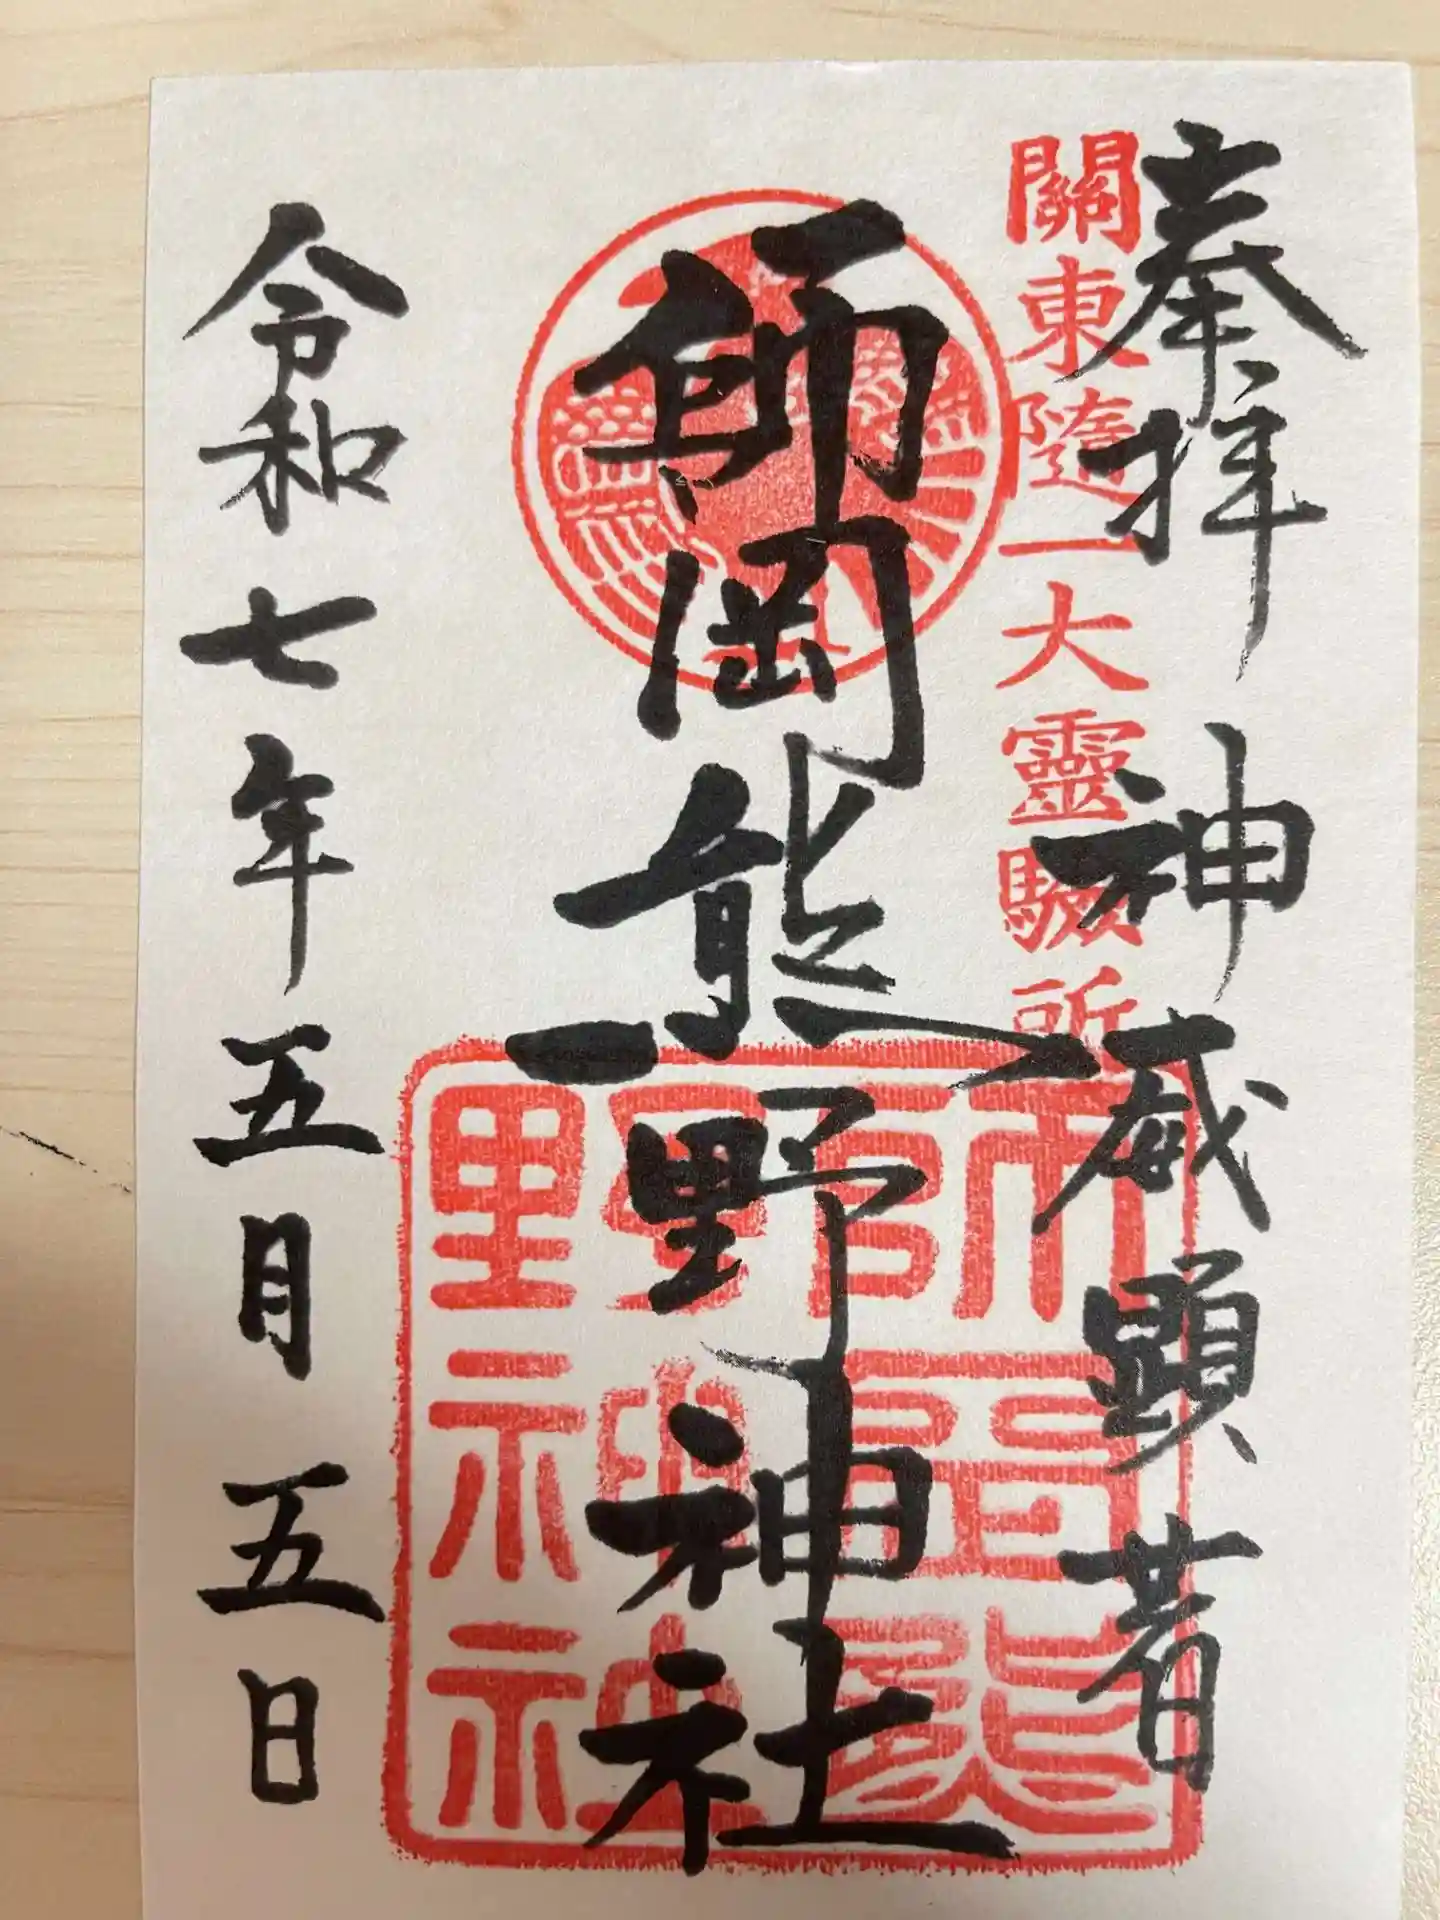 奉拝　神威顕著
關東隨一大靈驗所
師岡熊野神社
師岡熊野神社
令和七年五月五日